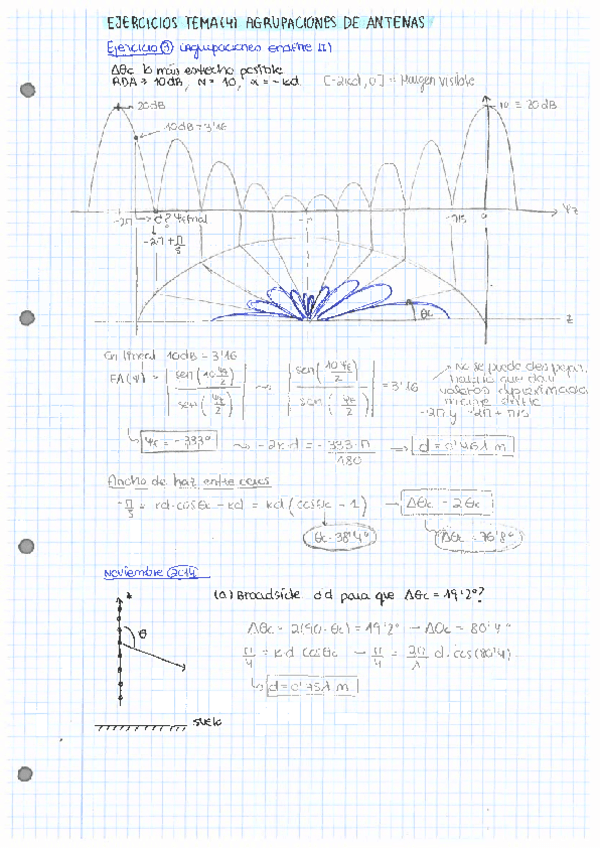 EJERCICIOS TEMA(4) AGRUPACIONES DE ANTENAS
Ejercicio 9) (Agrupaciones endfire II)
Δθc lo más estrecho posible
RDA > 10dB, N = 10, α = -kd [-2kd, 0] = Margen visible
20dB
10dB = 3'16
10 = 20dB
-2π c? ψfinal -π -π/5 0 ψz
-2π + π/5
θc z
En lineal 10dB = 3'16
FA(ψ) = | sen(10ψ/2) / sen(ψ/2) | ~> | sen(10ψε/2) / sen(ψε/2) | = 3'16
No se puede despejar,
habría que dar
valores aproximados
entre
-2π y -2π + π/5
ψε = -333º ~> -2kd = -333·π/180 → d = 0'461 m
Ancho de haz entre ceros
-π/5 = kd·cosθc - kd = kd (cosθc - 1) → Δθc = 2θc
θc = 38'4º Δθc = 76'8º
Noviembre 2014
(a) Broadside d para que Δθc = 19'2º?
z
θ
Δθc = 2(90 - θc) = 19'2º → Δθc = 80'4º
π/4 = kd cosθc → π/4 = 2π/λ d·cos(80'4)
d = 0'75λ m
suelo